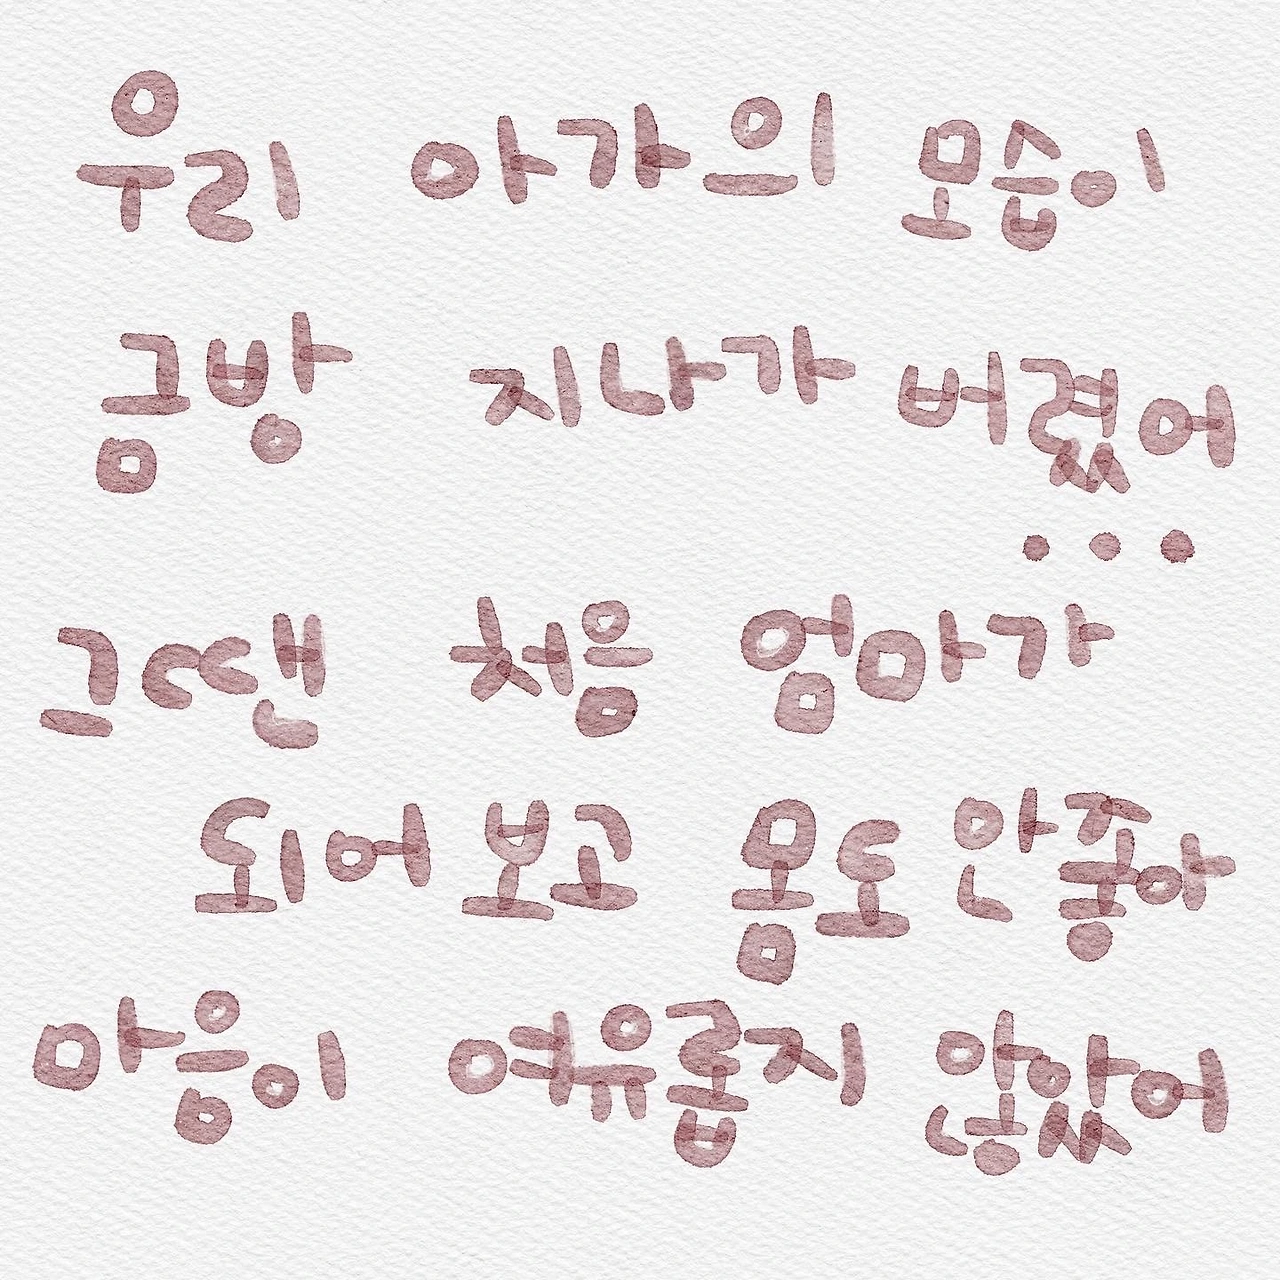 우리 아가의 모습이
금방 지나가 버렸어
...
그땐 처음 엄마가
되어 보고 몸도 안 좋아
마음이 여유롭지 않았어